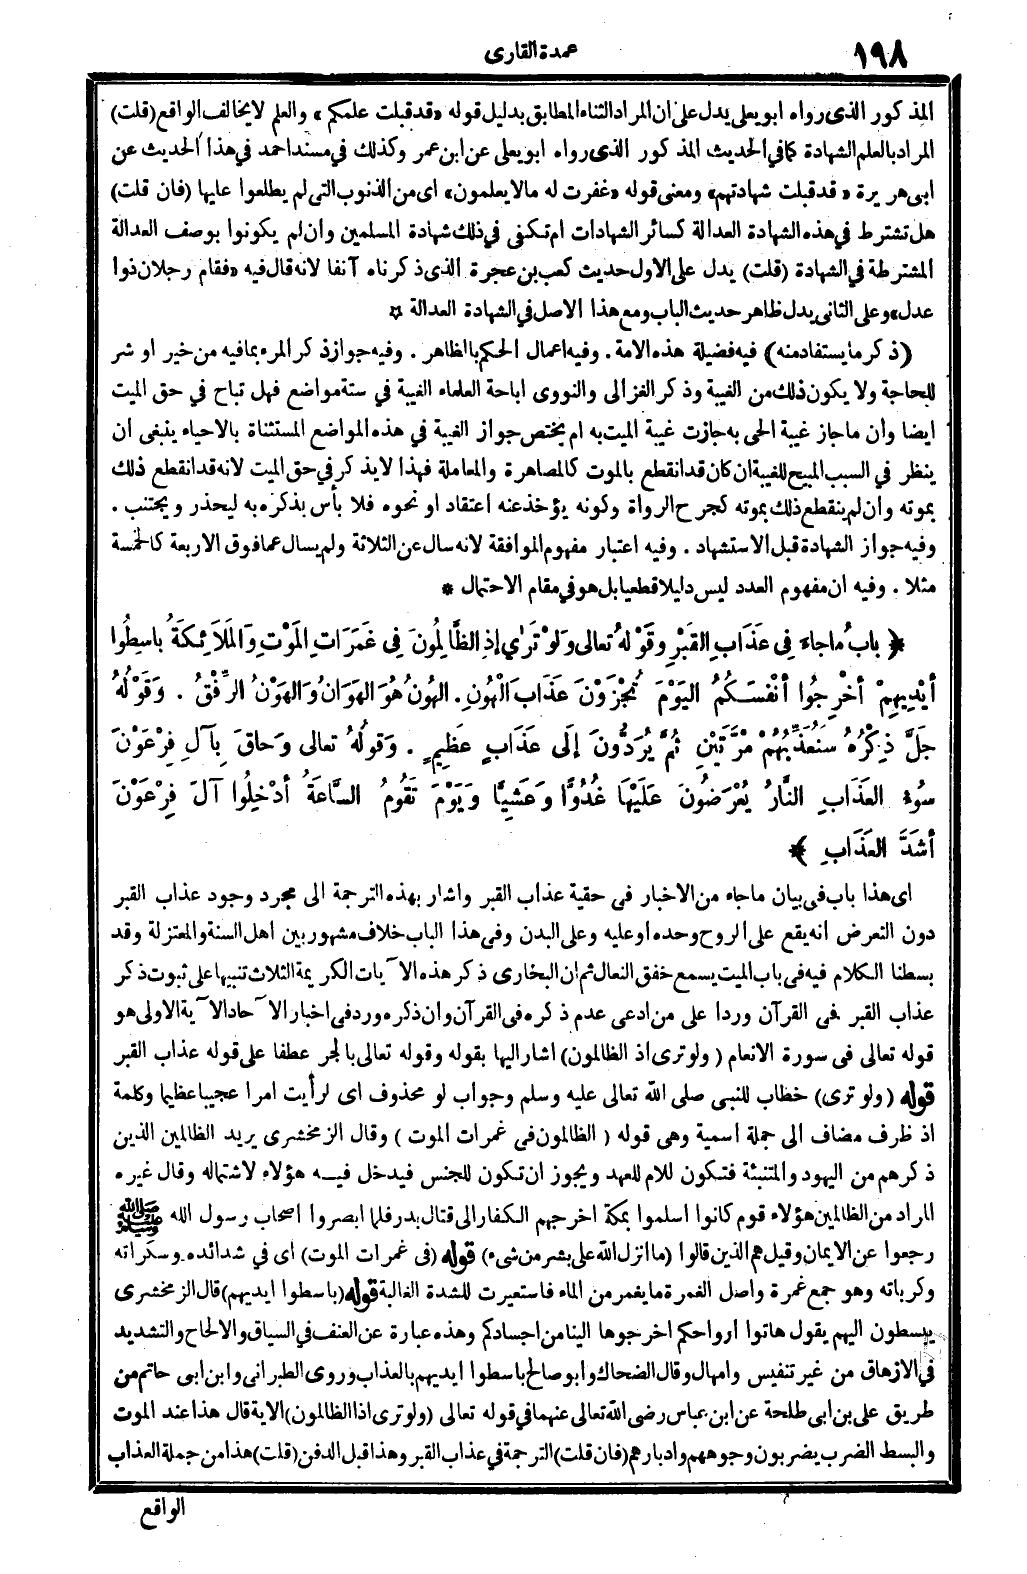 ١٩٨
عمدة القارى
المذكور الذى رواه ابو يعلى يدل على ان المراد الثناء المطابق بدليل قوله «قد قبلت علمكم» والعلم لا يخالف الواقع (قلت)
المراد بالعلم الشهادة كما في الحديث المذكور الذى رواه ابو يعلى عن ابن عمر وكذلك في مسند احمد في هذا الحديث عن
ابى هريرة «قد قبلت شهادتهم» ومعنى قوله «غفرت له مالا يعلمون» اى من الذنوب التى لم يطلعوا عليها (فان قلت)
هل تشترط في هذه الشهادة العدالة كسائر الشهادات ام تكفى في ذلك شهادة المسلمين وان لم يكونوا بوصف العدالة
المشترطة في الشهادة (قلت) يدل على الاول حديث كعب بن عجرة الذى ذكرناه آنفا لانه قال فيه «فقام رجلان ذوا
عدل» وعلى الثانى يدل ظاهر حديث الباب ومع هذا الاصل في الشهادة العدالة ✡
(ذكر ما يستفاد منه) فيه فضيلة هذه الامة . وفيه اعمال الحكم بالظاهر . وفيه جواز ذكر المرء بما فيه من خير او شر
للحاجة ولا يكون ذلك من الغيبة وذكر الغزالى والنووى اباحة العلماء الغيبة في ستة مواضع فهل تباح في حق الميت
ايضا وأن ما جاز غيبة الحى به جازت غيبة الميت به ام يختص جواز الغيبة في هذه المواضع المستثناة بالاحياء ينبغى ان
ينظر في السبب المبيح للغيبة ان كان قد انقطع بالموت كالمصاهرة والمعاملة فهذا لا يذكر في حق الميت لانه قد انقطع ذلك
بموته وان لم ينقطع ذلك بموته كجرح الرواة وكونه يؤخذ عنه اعتقاد او نحوه فلا بأس بذكره به ليحذر ويجتنب .
وفيه جواز الشهادة قبل الاستشهاد . وفيه اعتبار مفهوم الموافقة لانه سال عن الثلاثة ولم يسال عما فوق الاربعة كالخمسة
مثلا . وفيه ان مفهوم العدد ليس دليلا قطعيا بل هو في مقام الاحتمال *
﴿ بابُ ما جاءَ فِى عَذَابِ القَبْرِ وقَوْلهُ تعالى ولَوْ تَرَاى إذِ الظَّالِمُونَ فِى غَمَرَاتِ المَوْتِ وَالمَلَائِكَةُ باسِطُوا
أيْدِيهِمْ أخْرِجُوا أنْفُسَكُمُ اليَوْمَ تُجْزَوْنَ عَذَابَ الْهُونِ. الهُونُ هُوَ الهَوَانُ وَالهَوْنُ الرِّفْقُ . وَقَوْلُهُ
جَلَّ ذِكْرُهُ سَنُعَذِّبُهُمْ مَرَّتَيْنِ ثُمَّ يُرَدُّونَ إلَى عَذَابٍ عَظِيمٍ . وَقولُهُ تعالى وَحاقَ بِآلِ فِرْعَوْنَ
سُوءُ العَذَابِ النَّارُ يُعْرَضُونَ عَلَيْهَا غُدُوًّا وَعَشِيًّا وَيَوْمَ تَقُومُ السَّاعَةُ أدْخِلُوا آلَ فِرْعَوْنَ
أشَدَّ العَذَابِ ﴾
اى هذا باب فى بيان ما جاء من الاخبار فى حقية عذاب القبر واشار بهذه الترجمة الى مجرد وجود عذاب القبر
دون التعرض انه يقع على الروح وحده او عليه وعلى البدن وفى هذا الباب خلاف مشهور بين اهل السنة والمعتزلة وقد
بسطنا الكلام فيه فى باب الميت يسمع خفق النعال ثم ان البخارى ذكر هذه الآيات الكريمة الثلاث تنبيها على ثبوت ذكر
عذاب القبر فى القرآن وردا على من ادعى عدم ذكره فى القرآن وان ذكره ورد فى اخبار الآحاد الآية الاولى هو
قوله تعالى فى سورة الانعام (ولو ترى اذ الظالمون) اشار اليها بقوله وقوله تعالى بالجر عطفا على قوله عذاب القبر
قوله (ولو ترى) خطاب للنبى صلى الله تعالى عليه وسلم وجواب لو محذوف اى لرأيت امرا عجيبا عظيما وكلمة
اذ ظرف مضاف الى جملة اسمية وهى قوله (الظالمون فى غمرات الموت) وقال الزمخشرى يريد الظالمين الذين
ذكرهم من اليهود والمتنبئة فتكون للام للعهد ويجوز ان تكون للجنس فيدخل فيه هؤلاء لاشتماله وقال غيره
المراد من الظالمين هؤلاء قوم كانوا اسلموا بمكة اخرجهم الكفار الى قتال بدر فلما ابصروا اصحاب رسول الله ﷺ
رجعوا عن الايمان وقيل هم الذين قالوا (ما انزل الله على بشر من شىء) قوله (فى غمرات الموت) اى في شدائده وسكراته
وكرباته وهو جمع غمرة واصل الغمرة ما يغمر من الماء فاستعيرت للشدة الغالبة قوله (باسطوا ايديهم) قال الزمخشرى
يبسطون اليهم يقول هاتوا ارواحكم اخرجوها الينا من اجسادكم وهذه عبارة عن العنف في السياق والالحاح والتشديد
في الازهاق من غير تنفيس وامهال وقال الضحاك وابو صالح باسطوا ايديهم بالعذاب وروى الطبرانى وابن ابى حاتم من
طريق على بن ابى طلحة عن ابن عباس رضى الله تعالى عنهما في قوله تعالى (ولو ترى اذا الظالمون) الاية قال هذا عند الموت
والبسط الضرب يضربون وجوههم وادبارهم (فان قلت) الترجمة في عذاب القبر وهذا قبل الدفن (قلت) هذا من جملة العذاب
الواقع